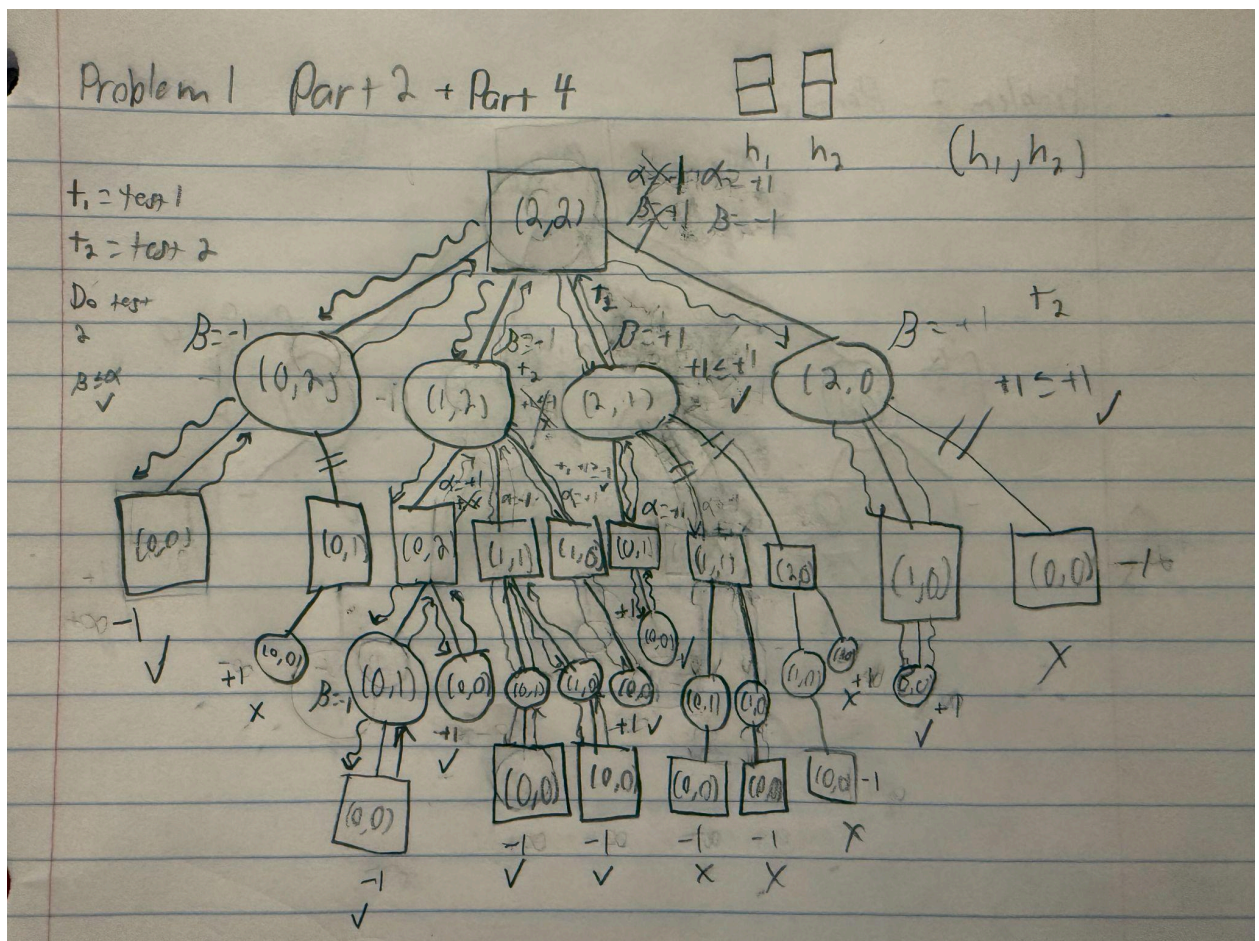 Problem 1 Part 2 + Part 4
h₁ h₂ (h₁, h₂)
t₁ = test 1
t₂ = test 2
Do test
2
β≤α
✓
(2,2)
α=-1 α=+1
β=+1 β=-1
t₂
β=-1
β=-1
t₂
β=+1
+1≤+1
✓
β=+1
t₂
+1≤+1
✓
(0,2)
-1
(1,2)
(2,1)
(2,0
α=+1
α=-1
α=+1
α=+1
(0,0)
(0,1)
(0,2)
(1,1)
(1,0)
(0,1)
(1,1)
(2,0)
(1,0)
(0,0)
-1
-1
✓
x
(0,0)
+1
x
β=-1
(0,1)
(0,0)
+1
✓
(0,1)
(1,0)
(0,0)
+1 ✓
+1
(0,0)
✓
(0,1)
(1,0)
(1,0)
x
(0,0)
+1
✓
(0,0)
(0,0)
(0,0)
(0,0)
(0,0)
(0,0)
-1
-1
✓
-1
✓
-1
✓
-1
x
-1
x
x